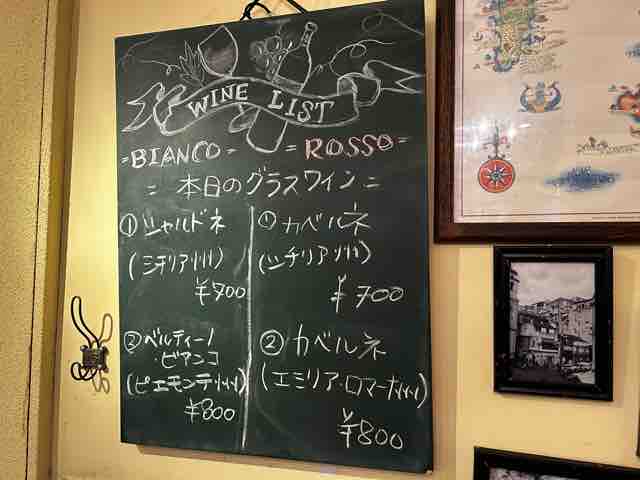 WINE LIST
=BIANCO= =ROSSO=
=本日のグラスワイン=
①シャルドネ
(シチリア州)
¥700
②ベルディーノ
・ビアンコ
(ピエモンテ州)
¥800
①カベルネ
(シチリア州)
¥700
②カベルネ
(エミリア・ロマーナ州)
¥800